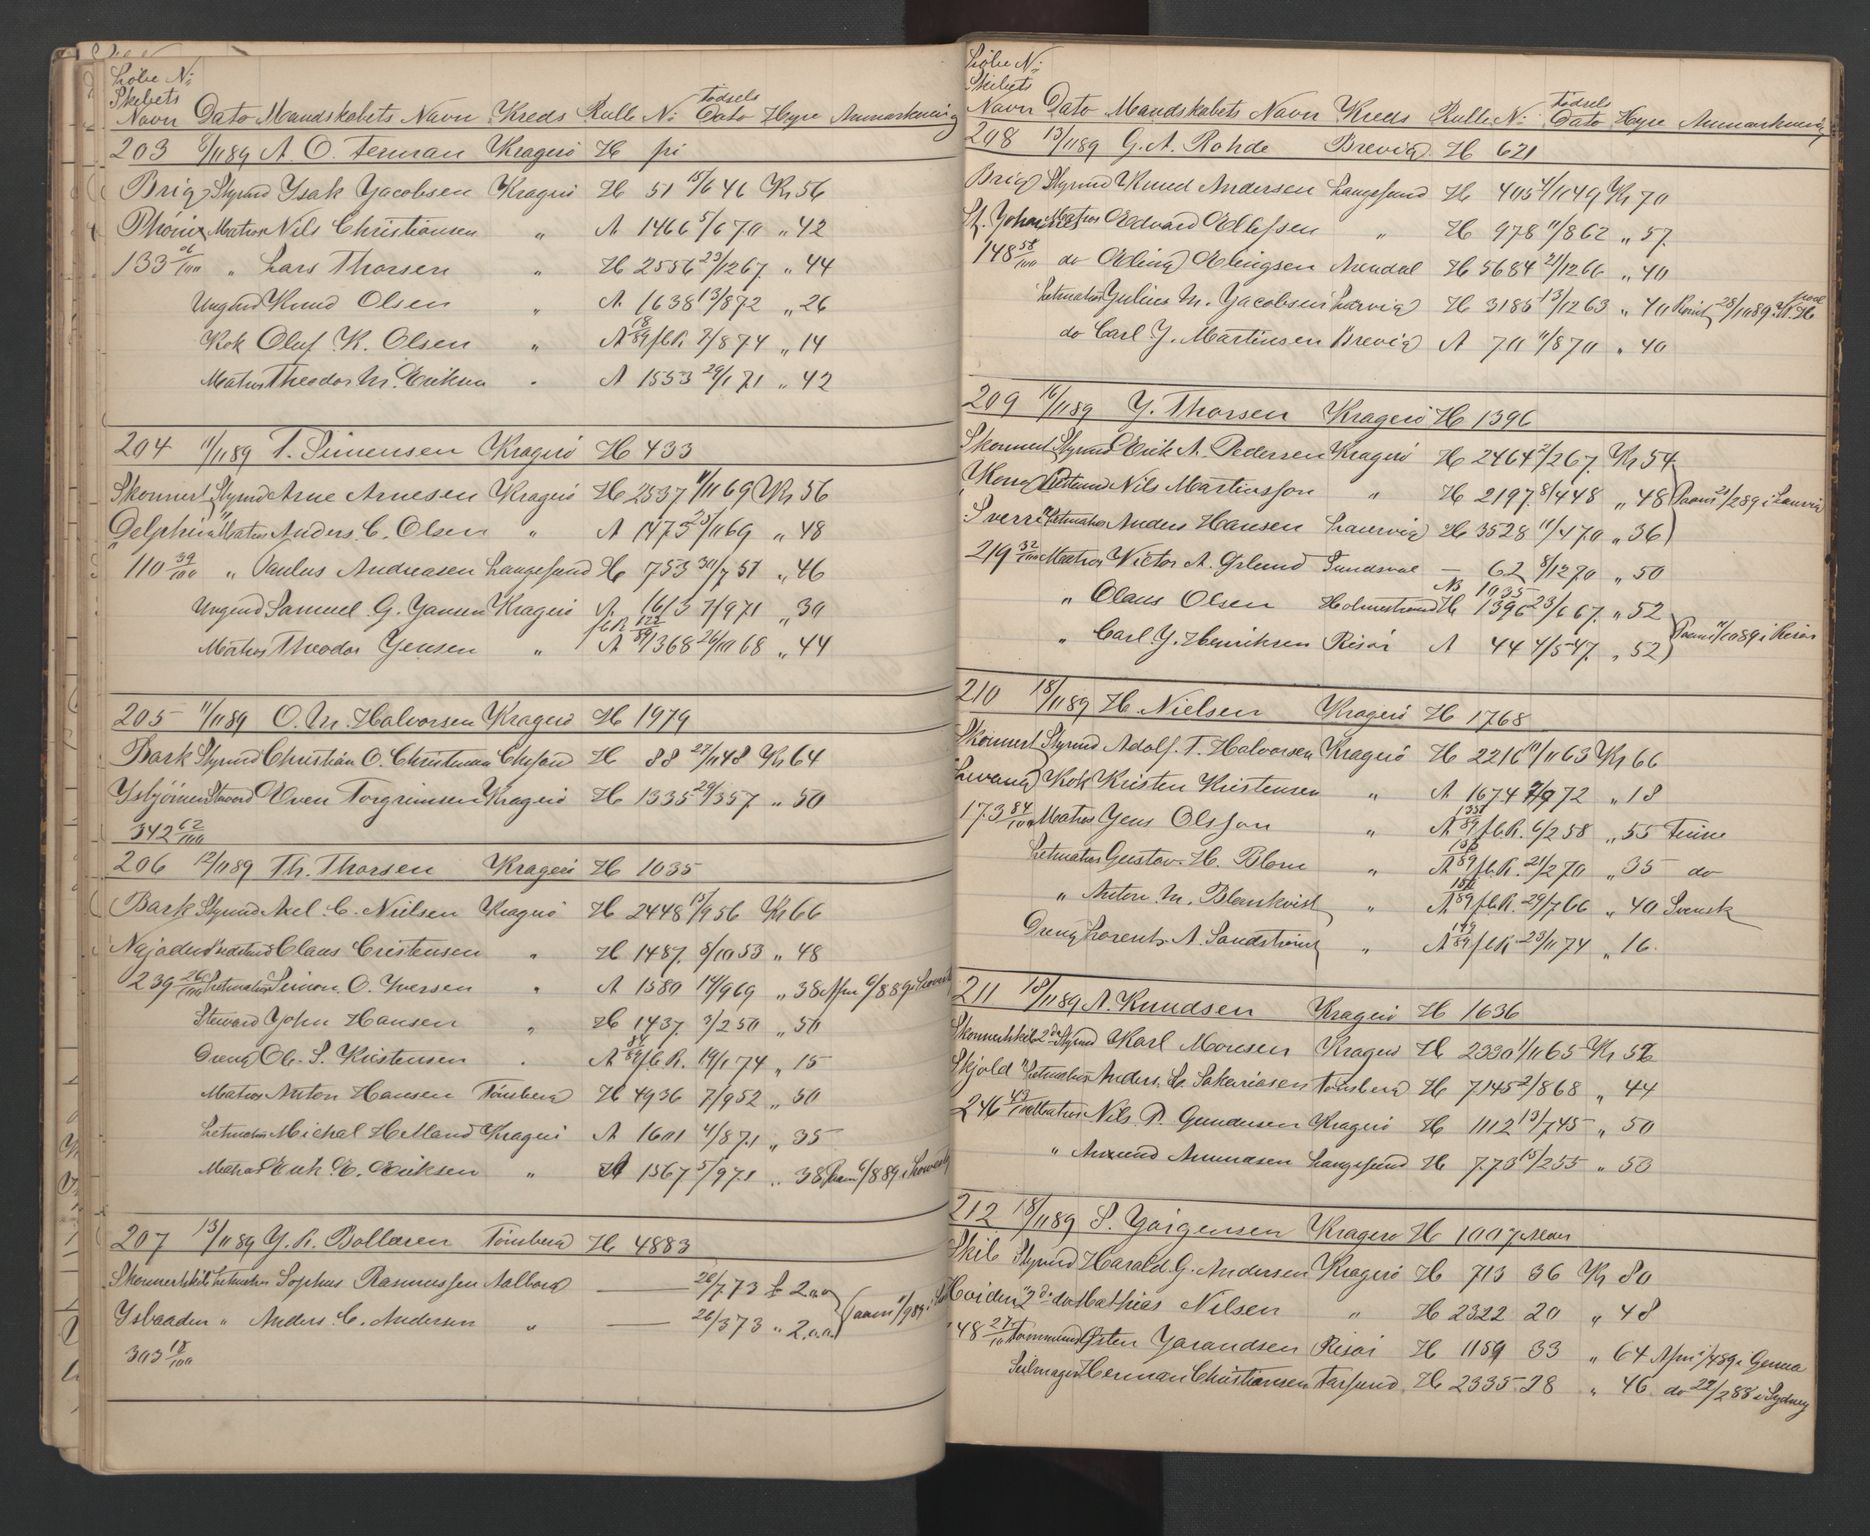 Løbe N:
Skibets
Navn Dato Mandskabets Navn Kreds Rulle N: Fødsels Dato Hyre Anmærkning
203 6/11 89 A. O. Terman Kragerö H fri
Brig Styrmd Ysak Jacobsen Kragerö H 51 15/6 46 Kr 56
Phönix Matros Nils Christiansen " A 1466 5/6 70 " 42
133 /100 " Lars Thorsen " H 2556 23/12 67 " 44
Ungmd Knud Olsen " A 1638 13/8 72 " 26
Kok Oluf K. Olsen " A 78/89 fl.R. 2/8 74 " 14
Matros Theodor M. Eriksen " A 1553 29/1 71 " 42
204 11/11 89 T. Simensen Kragerö H 433
Skonnert Styrmd Arne Arnesen Kragerö H 2537 11/11 69 Kr 56
"Delphin" Matros Anders C. Olsen " A 1473 25/11 69 " 48
110 39/100 " Paulus Andreasen Langesund H 753 30/7 51 " 46
Ungmd Samuel G. Jansen Kragerö A 1613 7/9 71 " 30
Matros Theodor Jensen " fl.R. 122/89 A 1368 26/10 68 " 44
205 11/11 89 O. M. Halvorsen Kragerö H 1979
Bark Styrmd Christian O. Christensen H 88 27/11 48 Kr 64
Ysbjörnen Stuard Even Torgrimsen Kragerö H 1335 29/3 57 " 50
342 62/100
206 12/11 89 Th. Thorsen Kragerö H 1035
Bark Styrmd Axel C. Nielsen Kragerö H 2448 15/9 56 Kr 66
Najaden Claus Cristensen " H 1487. 8/10 53 " 48
239 26/100 Letmatros Simon O. Iversen " A 1580 14/9 69 " 38 Afm 6/8 89 i
Steward John Hansen " H 1437. 3/2 50 " 50
Dreng Ole S. Kristensen " A 34/89 fl.R. 19/1 74 " 15
Matros Anton Hansen Tönsberg H 4936 7/9 52 " 50
Letmatros Michal Helland Kragerö A 1601 4/8 71 " 35
Matros Erik E. Eriksen " A 1567 5/9 71 " 38 6/8 89 i
207 13/11 89 J. R. Bollæren Tönsberg H 4883
Skonnertskib Letmatros Sophus Rasmussen Aalborg — 26/7 73 £ 2.0.0
Ysbaaden " Anders C. Andersen " — 26/3 73 " 2.0.0
303 18/100
Løbe N:
Skibets
Navn Dato Mandskabets Navn Kreds Rulle N: Fødsels Dato Hyre Anmærkning
208 13/11 89 G. A. Rohde Brevig H 621
Brig Styrmd Knud Andersen Langesund H 405 4/11 49 Kr 70
St. Johannes Matros Edvard Ellefsen " H 978 11/8 62 " 57.
148 58/100 do Elling Ellingsen Arendal H 5684 21/12 66 " 40
Letmatros Julius M. Jacobsen Larvig H 3185 13/12 63 " 40 28/10 89
do Carl J. Martinsen Brevig A 70 11/8 70 " 40
209 16/11 89 J. Thorsen Kragerö H 1396
Skonnert Styrmd Erik A. Pedersen Kragerö H 2464 2/2 67. Kr 54
"Kong Nils Martinsson " H 2197. 8/4 48 " 48 Paam 21/2 89 i Laurvig
Sverre" Letmatros Anders Hansen Laurvig H 3528 10/4 70 " 36
219 32/100 Matros Victor A. Oslund Sundsval — 62 8/12 70 " 50
" Olaus Olsen Holmestrand H 1396 NB 1035 23/6 67. " 52
" Carl J. Henriksen Risör A 44 4/5 47. " 52 Paam 11/10 89 i Risör
210 18/11 89 H. Nielsen Kragerö H 1768
Skonnert Styrmd Adolf T. Halvorsen Kragerö H 2216 11/11 63 Kr 66
Levang Kok Kristen Kristensen " A 1674 7/9 72 " 18
173 84/100 Matros Jens Olsson " A 135/89 fl.R. 6/2 58 " 55 Finne
Letmatros Gustav H. Blom " A 89 fl.R. 21/2 70 " 35 do
" Anton M. Blankvist " A 89 fl.R. 29/7 66 " 40 Svensk
Dreng Lorents A. Sandström " A 149/89 fl.R. 23/11 74 " 16.
211 18/11 89 A. Knudsen Kragerö H 1636
Skonnertskib 2den Styrmd Karl Monsen Kragerö H 2330 1/11 65 Kr 56
Skjold" Letmatros Anders L. Sakariasen Tönsberg H 7145 2/8 68 " 44
246 43/100 Matros Nils P. Gundersen Kragerö H 1112 13/7 45 " 50
" Amund Amundsen Langesund H 773 15/2 55 " 50
212 18/11 89 S. Jörgensen Kragerö H 1007
Skib Styrmd Harald G. Andersen Kragerö H 713 36 Kr 80
Hoiden" 2den do Mathias Nilsen " H 2322 20 " 48
48 27/100 Tömmermd Östen Jorandsen Risör H 1159 33 " 64 Afm 1/4 89 i Genua
Seilmager Herman Christiansen Farsund H 2335 28 " 46 do 22/2 88 i Sydney